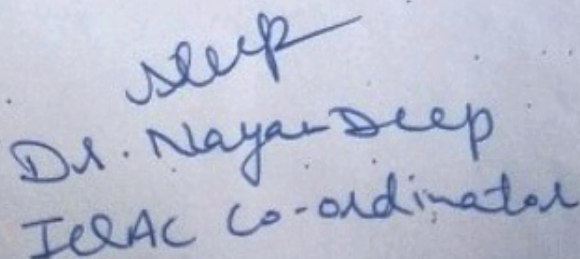 Dr. Nayan Deep
IQAC Co-ordinator